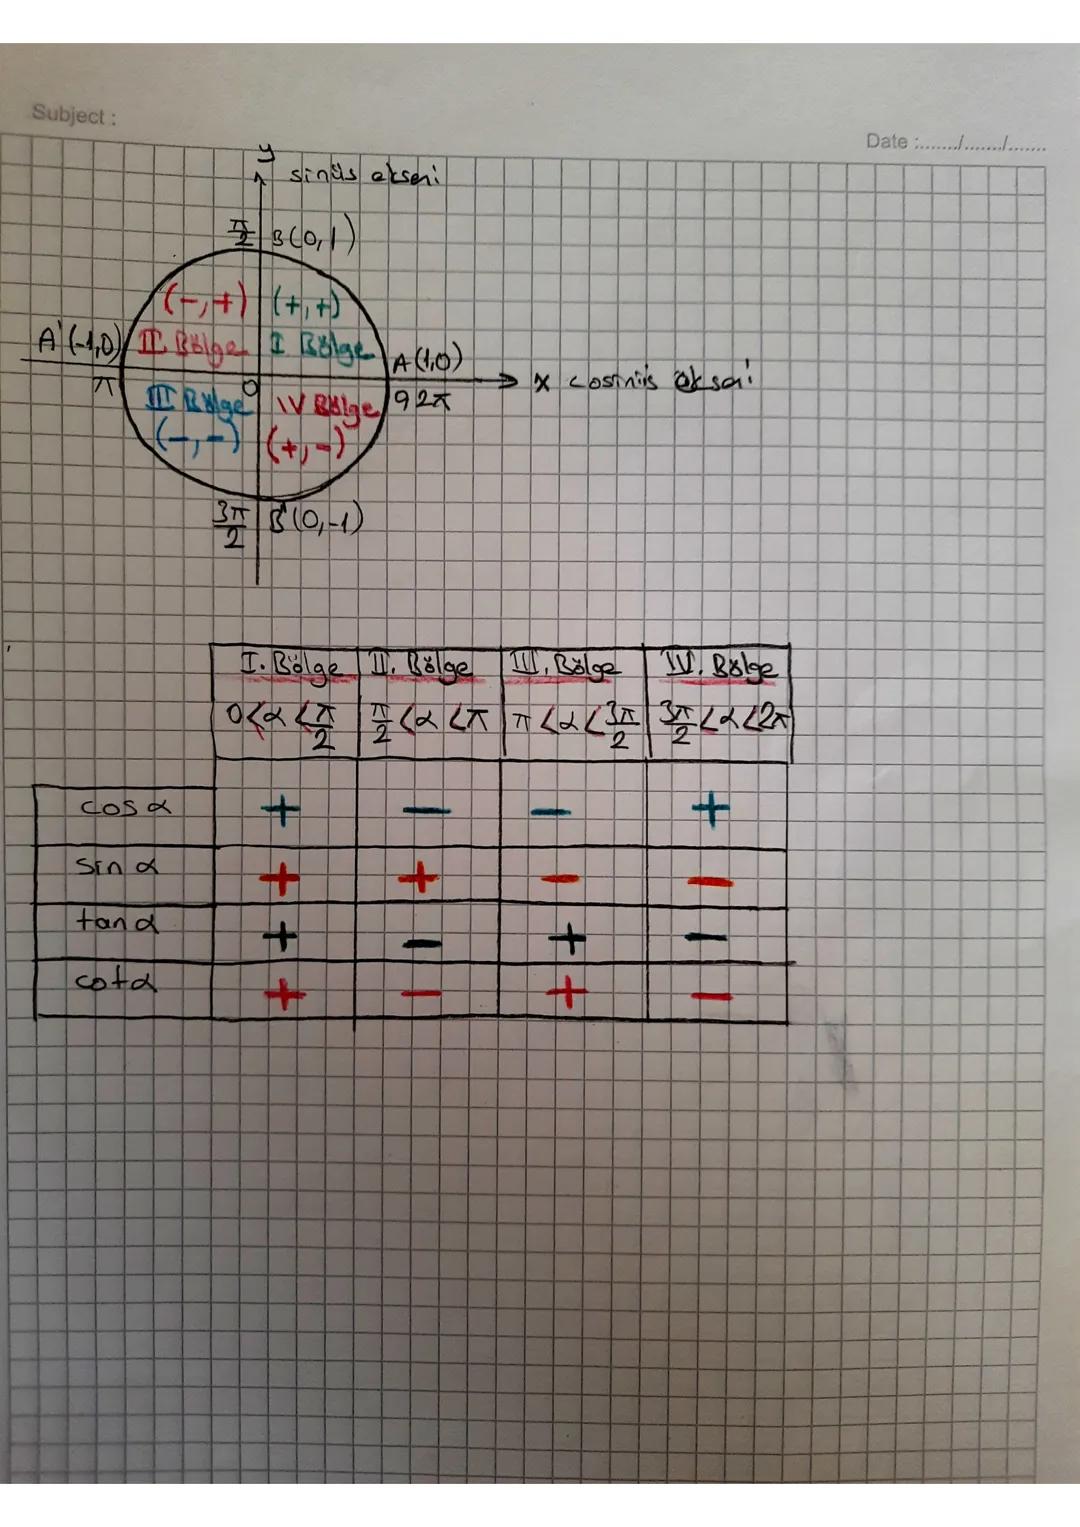 Subject :
Date :......./......./.......
y
sinüs ekseni
π/2 B(0,1)
(-,+) (+,+)
A'(-1,0) II. Bölge I Bölge A(1,0)
x cosinüs ekseni
π 0 III Bölge IV Bölge 9 2π
(-,-) (+,-)
3π/2 B'(0,-1)
I. Bölge II. Bölge III. Bölge IV. Bölge
0<α<π/2 π/2<α<π π<α<3π/2 3π/2<α<2π
cosα + - - +
sinα + + - -
tanα + - + -
cotα + - + -